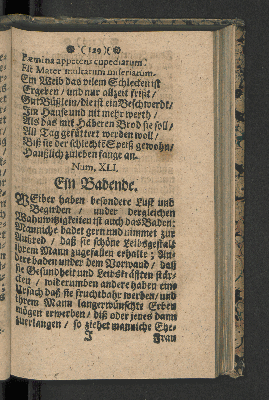 ( 129 )
Fæmina appetens cupediarum.
Est Mater multarum miseriarum.
Ein Weib das vilem Schlecken ist
Ergeben / und nur allzeit frißt /
Gut Bißlein / die ist ein Beschwerdt /
Im Hause und nit mehr werth /
Als daß mit Häberen Brod sie soll /
All Tag gefüttert werden woll /
Biß sie der schlechte Speiß gewohn /
Haußlich zuleben fange an.
Num. XLI.
Ein Badende.
WEiber haben besondere Lust und
Begirden / under dergleichen
Wahnwitzigkeiten ist auch das Baden:
Manniche badet gern und nimmet zur
Außred / daß sie schöne Leibsgestalt
ihrem Mann zugefallen erhalte ; An-
dere baden under dem Vorwand / daß
sie Gesundheit und Leibskräfften stär-
cken / widerumben andere haben eine
Ursach daß sie fruchtbahr werden / und
ihrem Mann langerwünschte Erben
mögen erwerben / diß oder jenes dann
zuerlangen / so ziehet manniche Ehe-
J Frau